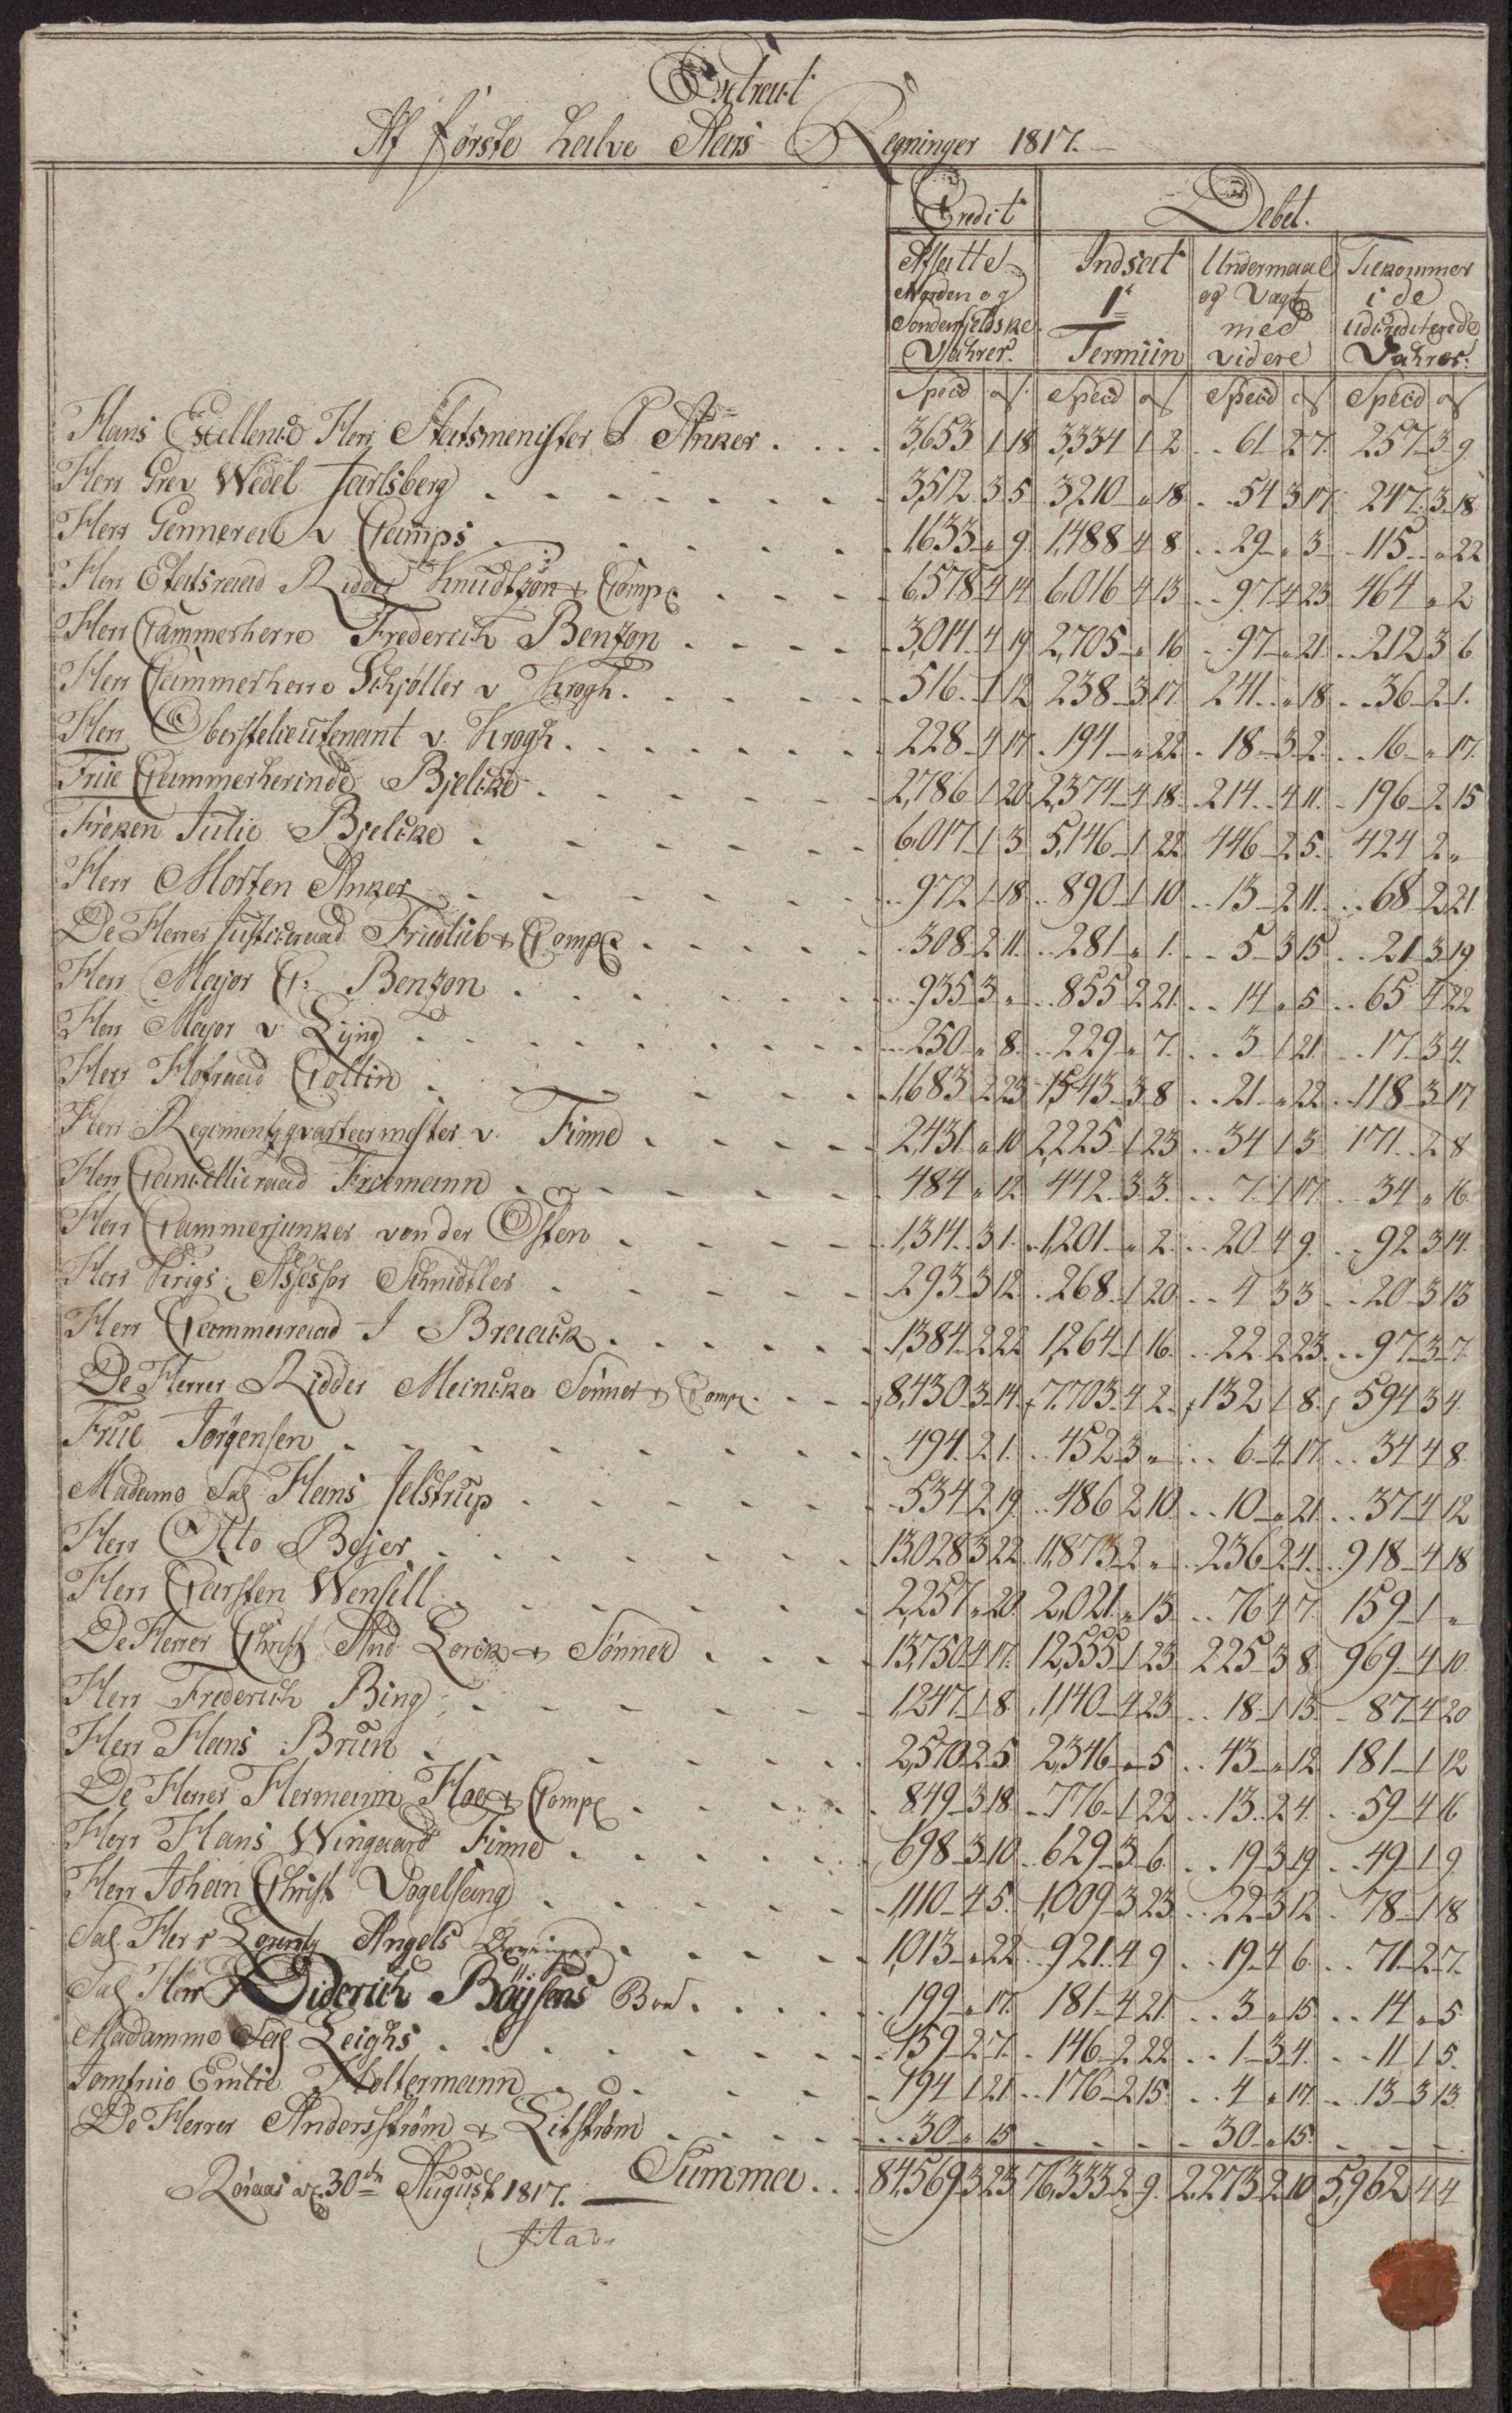 Extract
Af første halve Aars Regninger 1817.
Credit Debet.
Afsatte Norden og Søndenfjeldske Vahrer. Indsat 1t Termiin Undermaal og Vægt med videre Tilkommer i de udcrediterede Vahrer.
Specd Specd Specd Specd
Hans Excellence Herr Statsmenister P Anker 3,653 1 18 3,334 1 2 61 2 7 257 3 9
Herr Grev Wedel Jarlsberg 3,512 3 5 3,210 " 18 54 3 17 247 3 18
Herr Gennerael v Kramps 1,633 " 9 1,488 4 8 29 " 3 115 " 22
Herr Etatsraad Ridder Knudtzon & Comp 6,578 4 14 6,016 4 13 97 4 23 464 " 2
Herr Cammerherre Frederich Benzon 3,014 4 19 2,705 " 16 97 " 21 212 3 6
Herr Cammerherre Schjøller v Krogh 516 1 12 238 3 17 241 " 18 36 2 1
Herr Oberstelieutenant v. Krogh 228 4 17 194 " 22 18 3 2 16 " 17
Frue Cammerherinde Bjelcke 2,786 1 20 2,374 4 18 214 4 11 196 2 15
Frøken Julie Bjelcke 6,017 1 3 5,146 1 22 446 2 5 424 2 "
Herr Morten Anker 972 1 18 890 1 10 13 2 11 68 2 21
De Herrer Justiceraad Friedlieb & Comp 308 2 11 281 " 1 5 3 15 21 3 19
Herr Major C. Benzon 935 3 " 855 2 21 14 " 5 65 4 22
Herr Major v Lÿng 250 " 8 229 " 7 3 1 21 17 3 4
Herr Hofraad Collin 1,683 2 23 1,543 3 8 21 " 22 118 3 17
Herr Regimentzqvarteermester v. Finne 2,431 " 10 2,225 1 23 34 1 3 171 2 8
Herr Cancelliraad Framann 484 " 12 442 3 3 7 1 17 34 " 16
Herr Cammerjunker von der Osten 1,314 3 1 1,201 " 2 20 4 9 92 3 14
Herr Krigs Assessor Schmidtler 293 3 12 268 1 20 4 3 3 20 3 13
Herr Cammerraad J Braack 1,384 2 22 1,264 1 16 22 2 23 97 3 7
De Herrer Ridder Meincke Sønner & Comp 8,430 3 14 7,703 4 2 132 1 8 594 3 4
Frue Jørgensen 494 2 1 452 3 " 6 4 17 34 4 8
Madame Sal Hans Jelstrup 534 2 19 486 2 10 10 " 21 37 4 12
Herr Otto Bejer 13,028 3 22 11,873 2 " 236 2 4 918 4 18
Herr Carsten Wensell 2,257 " 20 2,021 " 13 76 4 7 159 1 "
De Herrer Christ And Lorck & Sønner 13,750 4 17 12,555 1 23 225 3 8 969 4 10
Herr Frederich Bing 1,247 1 8 1,140 4 23 18 1 13 87 4 20
Herr Hans Brun 2,570 2 5 2,346 " 5 43 " 12 181 1 12
De Herrer Hermann Hoe & Comp 849 3 18 776 1 22 13 2 4 59 4 16
Herr Hans Wingaard Finne 698 3 10 629 3 6 19 3 19 49 1 9
Herr Johan Christ Vogelsang 1,110 4 5 1,009 3 23 22 3 12 78 1 18
Sal Herr Lorentz Angels 1,013 " 22 921 4 9 19 4 6 71 2 7
Sal Herr Diderich Bøÿsens Boe 199 " 17 181 4 21 3 " 15 14 " 5
Madamme Sal Leighs 159 2 7 146 2 22 1 3 4 11 1 5
Jomfrue Emilie Holtermann 194 1 21 176 2 15 4 " 17 13 3 13
De Herrer Andersstrøm & Litstrøm 30 " 15 30 " 15
Summa 84,569 3 23 76,333 2 9 2,273 2 10 5,962 4 4
Røraas d. 30te August 1817.